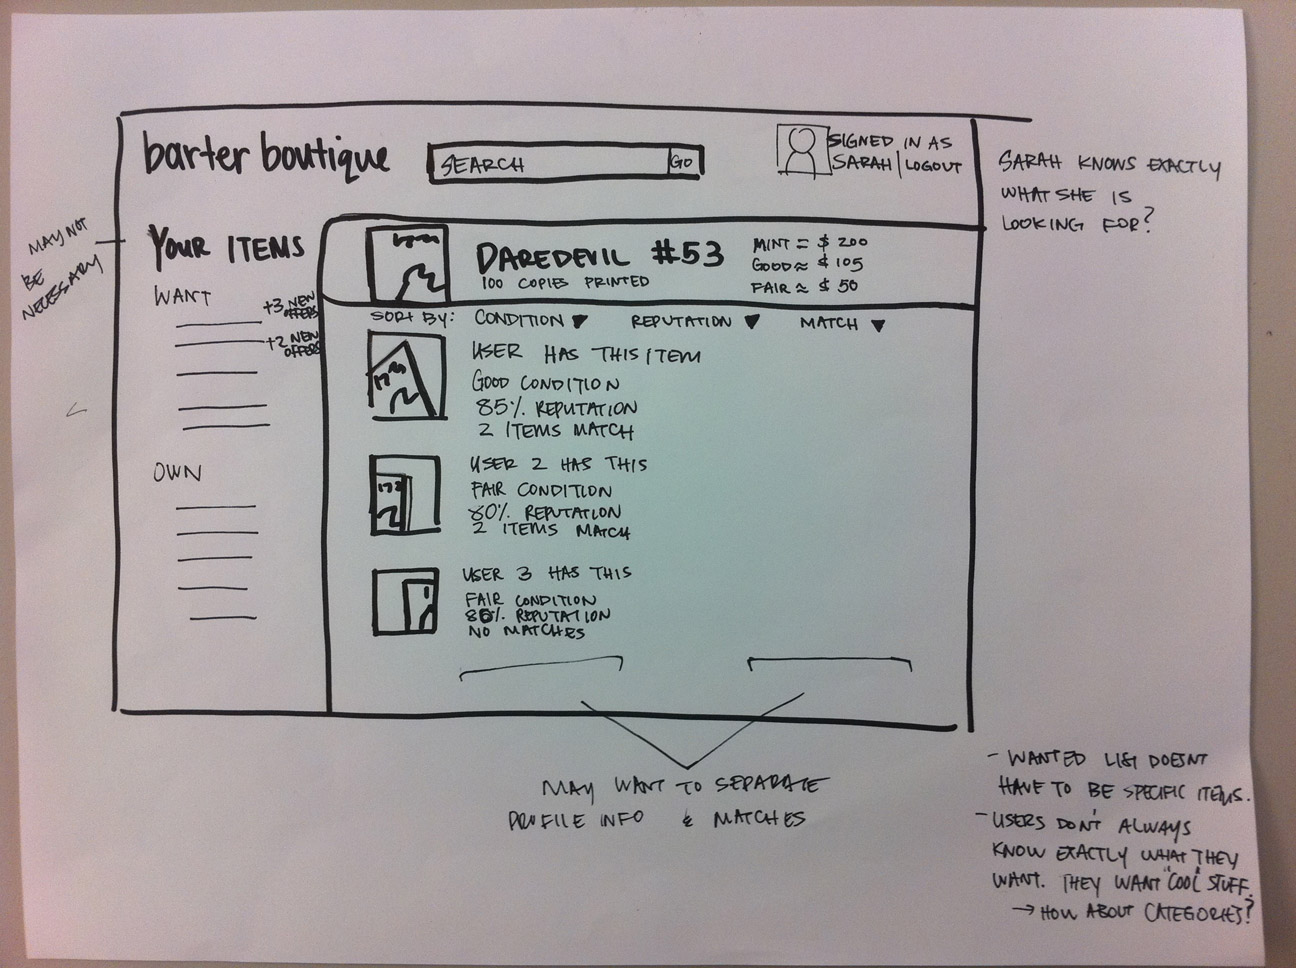 barter boutique
SEARCH
GO
SIGNED IN AS
SARAH | LOGOUT
SARAH KNOWS EXACTLY
WHAT SHE IS
LOOKING FOR?
MAY NOT
BE
NECESSARY
YOUR ITEMS
WANT
+3 NEW
OFFERS
+2 NEW
OFFERS
OWN
DAREDEVIL #53
100 COPIES PRINTED
MINT = $ 200
GOOD ≈ $ 105
FAIR ≈ $ 50
SORT BY: CONDITION ▼ REPUTATION ▼ MATCH ▼
USER HAS THIS ITEM
GOOD CONDITION
85% REPUTATION
2 ITEMS MATCH
USER 2 HAS THIS
FAIR CONDITION
80% REPUTATION
2 ITEMS MATCH
USER 3 HAS THIS
FAIR CONDITION
REPUTATION
NO MATCHES
MAY WANT TO SEPARATE
PROFILE INFO & MATCHES
- WANTED LIST DOESNT
HAVE TO BE SPECIFIC ITEMS.
- USERS DON'T ALWAYS
KNOW EXACTLY WHAT THEY
WANT. THEY WANT "COOL" STUFF.
→ HOW ABOUT CATEGORIES?